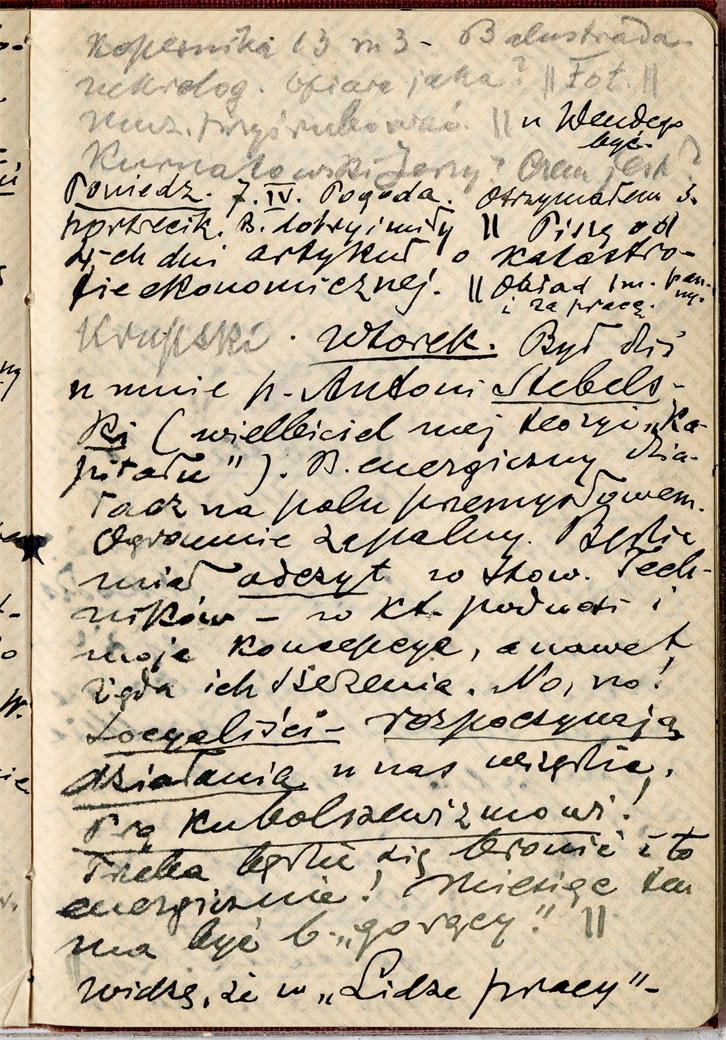 Kopernika 13 m 3 - Balustrada
nekrolog. Ofiara jaka? || Fot. ||
muz. przyśrubować. || u Wendego
być.
Kurnatowski Jerzy? Czem jest?
Poniedz. 7.IV. Pogoda. Otrzymałem
portrecik. B. dobry i miły || Piszę od
4-ch dni artykuł o katastro-
fie ekonomicznej. || Obiad im. pan-
ny.
i za pracę.
Krupski. Wtorek. Był dziś
u mnie p. Antoni Stebels-
ki (wielbiciel mej teoryi „Ka-
pitału"). B. energiczny dzia-
łacz na polu przemysłowem.
Ogromnie zapalny. Będzie
miał odczyt w Stow. Tech-
ników - w kt. podnosi i
moje koncepcye, a nawet
żąda ich szerzenia. No, no!
Socyaliści - rozpoczynają
działania u nas wszędzie.
Prą ku bolszewizmowi!
Trzeba będzie się bronić i to
energicznie! Miesiąc ten
ma być b. „gorący". ||
widzę, że w „Lidze pracy"-